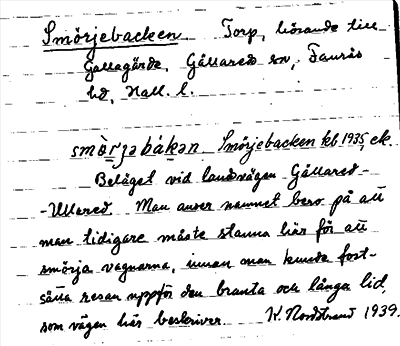 Smörjebacken Torp, hörande till
Gallagärde, Gällared sn, Faurås
hd, Hall. l.
smòrjabákan Smörjebacken kb 1935, ek.
Beläget vid landsvägen Gällared-
-Ullared. Man anser namnet bero på att
man tidigare måste stanna här för att
smörja vagnarna, innan man kunde fort-
sätta resan uppför den branta och långa lid,
som vägen här beskriver. K. Nordstrand 1939.